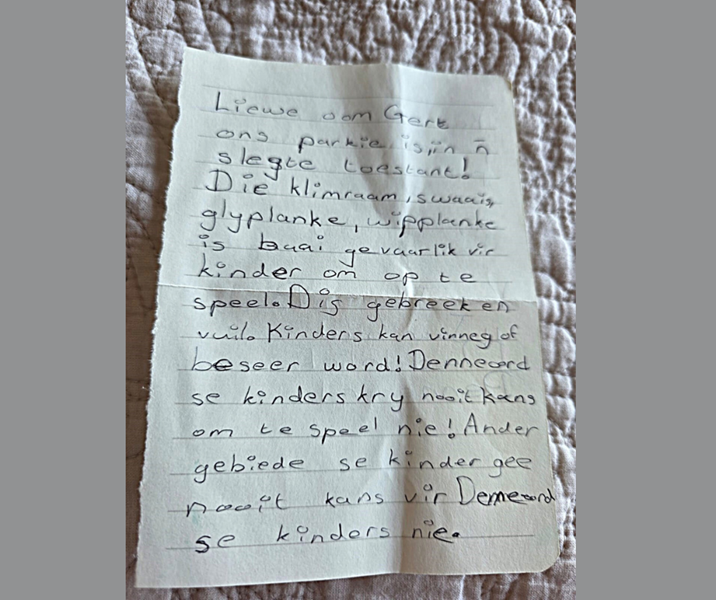 Liewe oom Gert
ons parkie is in 'n
slegte toestant!
Die klimraam, swaais,
glyplanke, wipplanke
is baai gevaarlik vir
kinder om op te
speel. Dis gebreek en
vuil. Kinders kan vinneg of
beseer word! Denneoord
se kinders kry nooit kans
om te speel nie! Ander
gebiede se kinder gee
nooit kans vir Denneoord
se kinders nie.